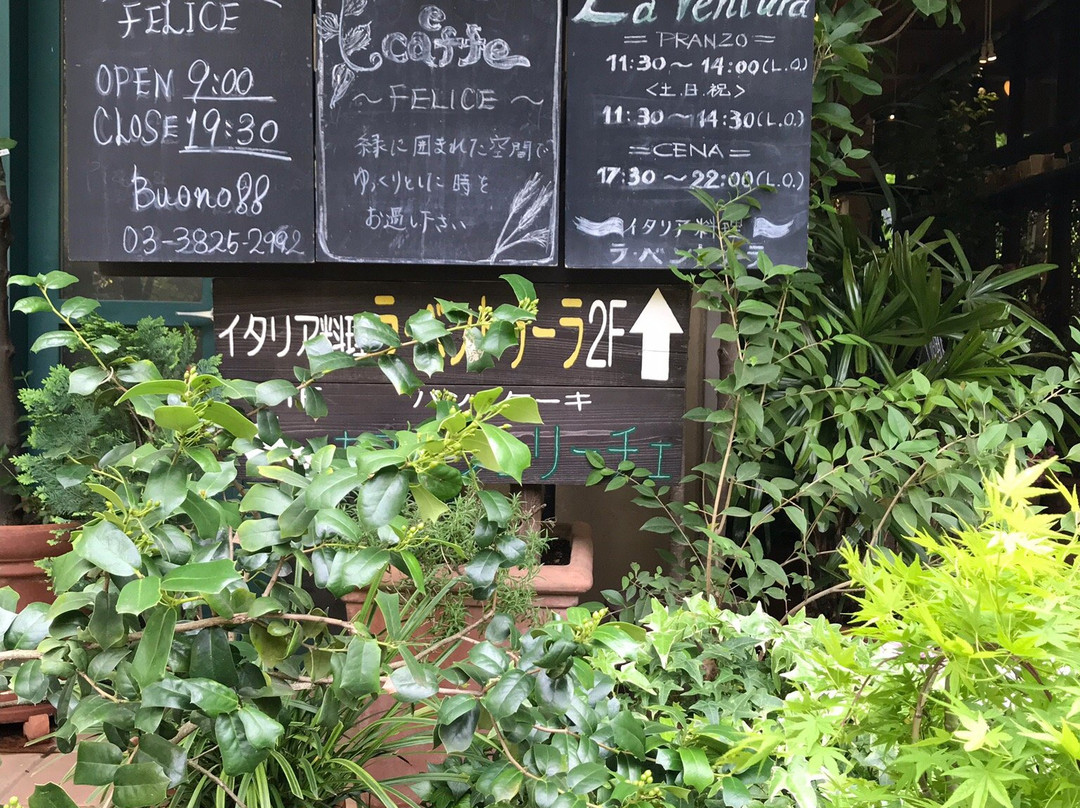 FELICE
OPEN 9:00
CLOSE 19:30
Buono88
03-3825-2992
caffe
～FELICE～
緑に囲まれた空間で
ゆっくりとした時を
お過し下さい
La Ventura
=PRANZO=
11:30～14:00(L.O.)
<土.日.祝>
11:30～14:30(L.O.)
=CENA=
17:30～22:00(L.O.)
イタリア料理
ラ・ベ
イタリア料理
ーラ2F
ケーキ
リーチェ